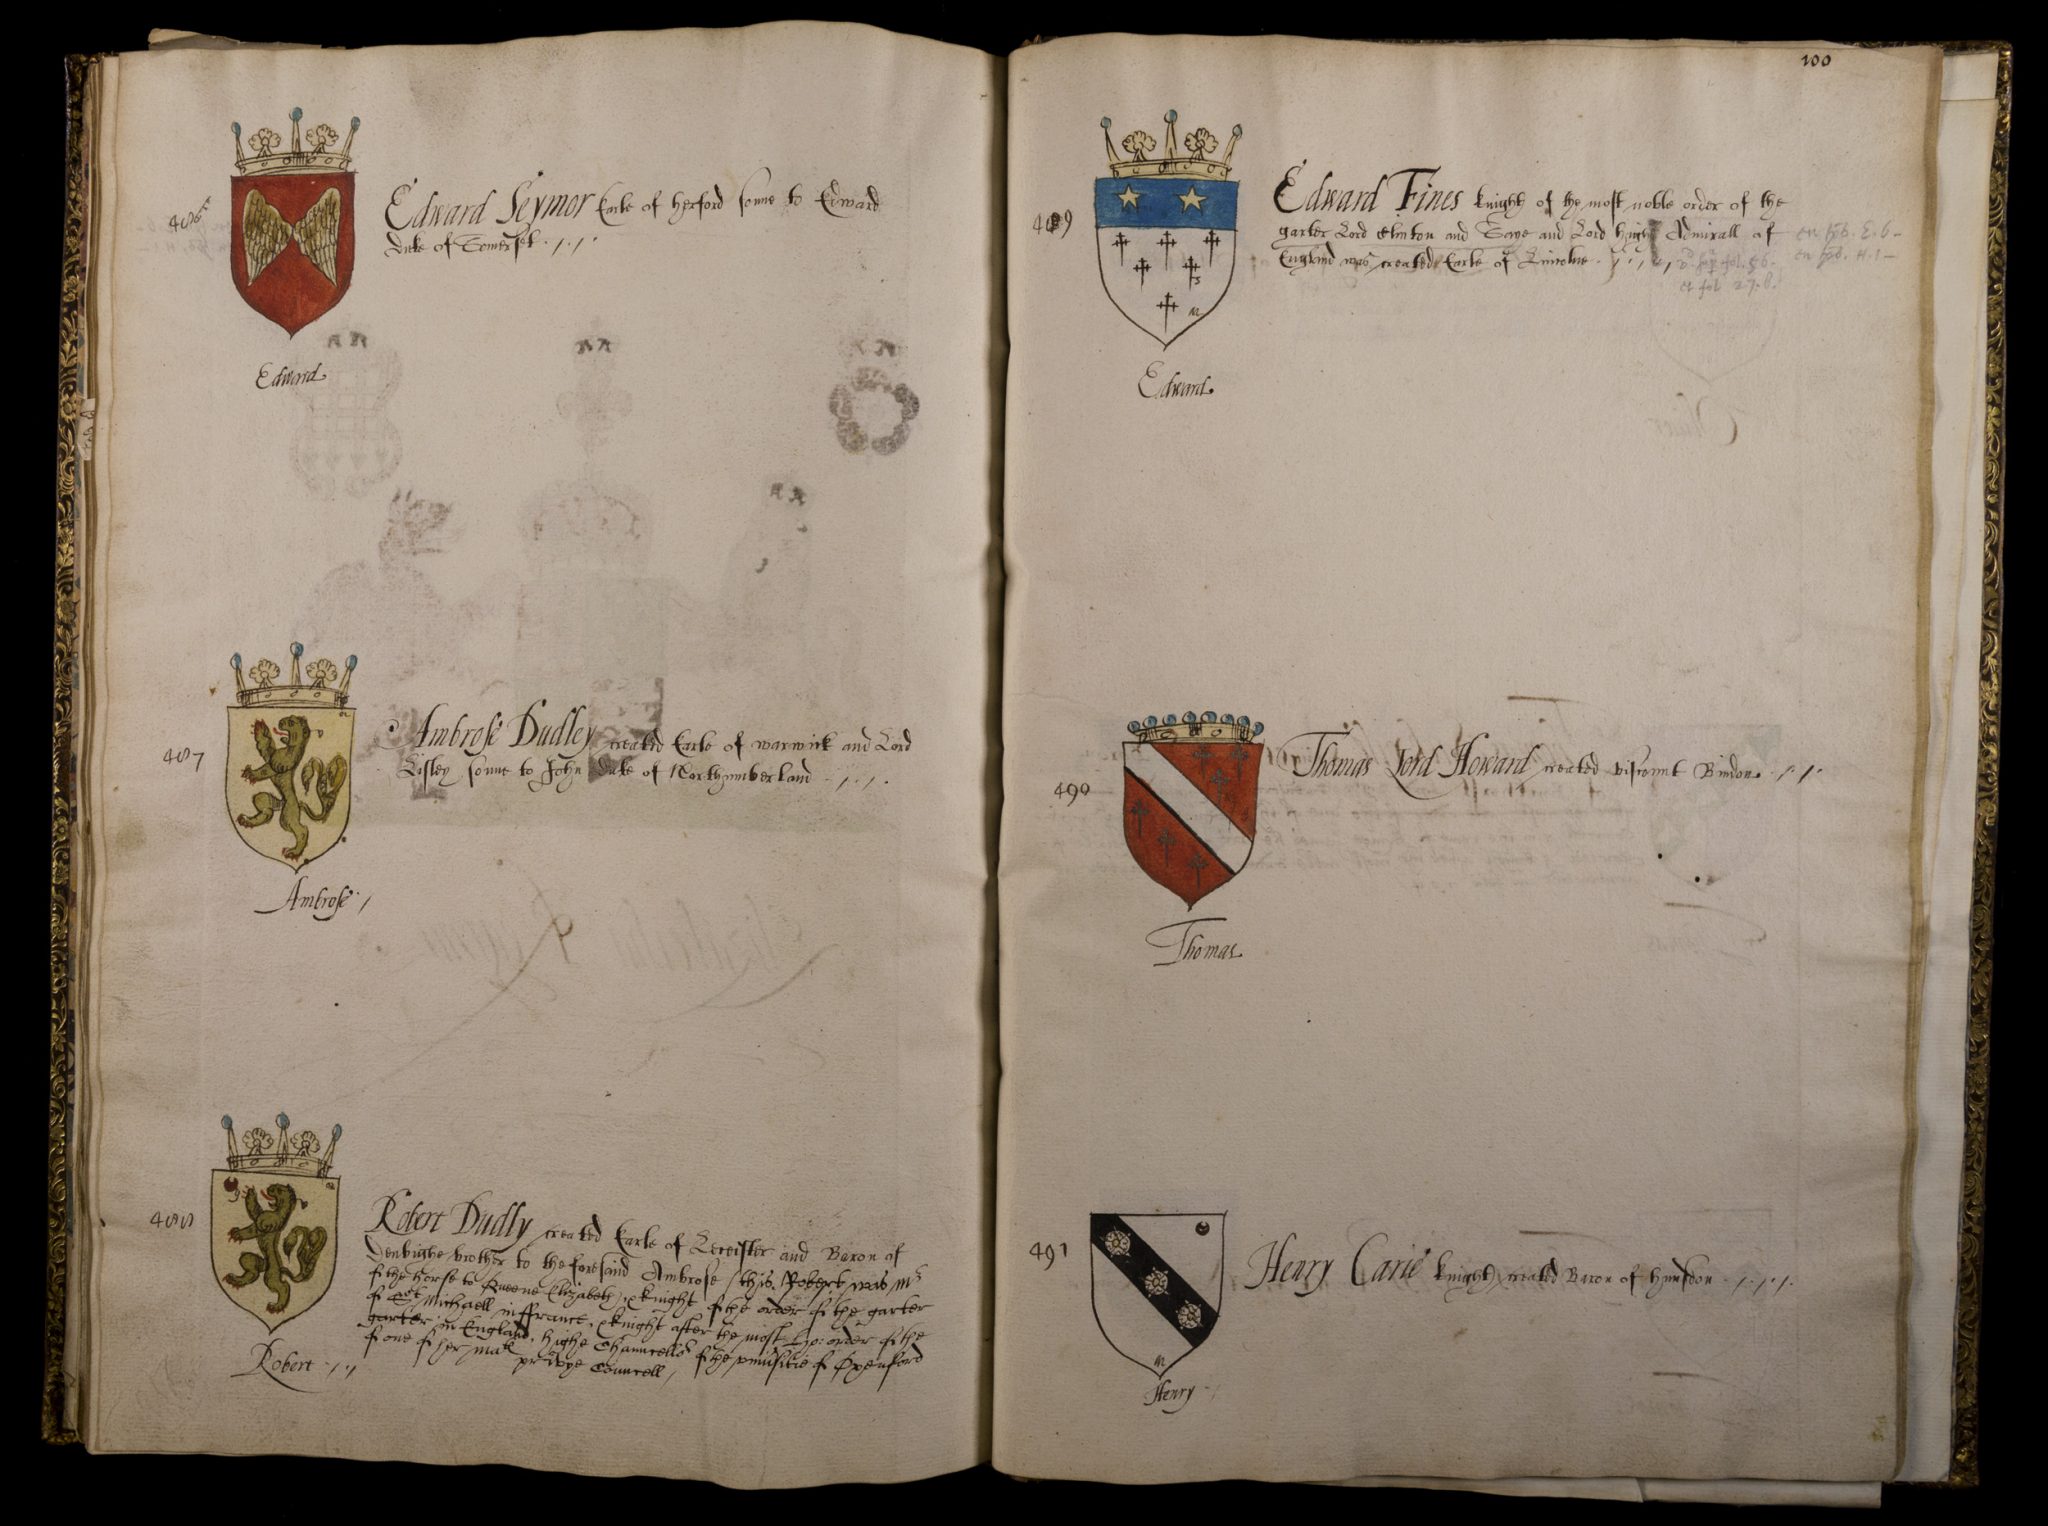 486
Edward Seymor Earle of Herford sonne to Edward
Duke of Somerset
Edward
487
Ambrose Dudley created Earle of warwick and Lord
Lisley sonne to John Duke of Northumberland
Ambrose
488
Robert Dudly created Earle of Leceister and Baron of
Denbighe brother to the foresaid Ambrose / this Robert was mr
of the horse to Queene Elizabeth, knight of the order of the garter
of Sct Michaell in ffrance, knight after the most ho: order of the
garter in England, highe Chauncellor of the of Oxenford
of one of her matie privye Councell,
Robert
100
489
Edward Fines knight of the most noble order of the
garter Lord Clinton and Saye and Lord high Admirall of
England was created Earle of Lincolne
et fol 27.b.
Edward
490
Thomas Lord Howard created viscount Bindon
Thomas
491
Henry Carie knight created Baron of Hunsdon
Henry